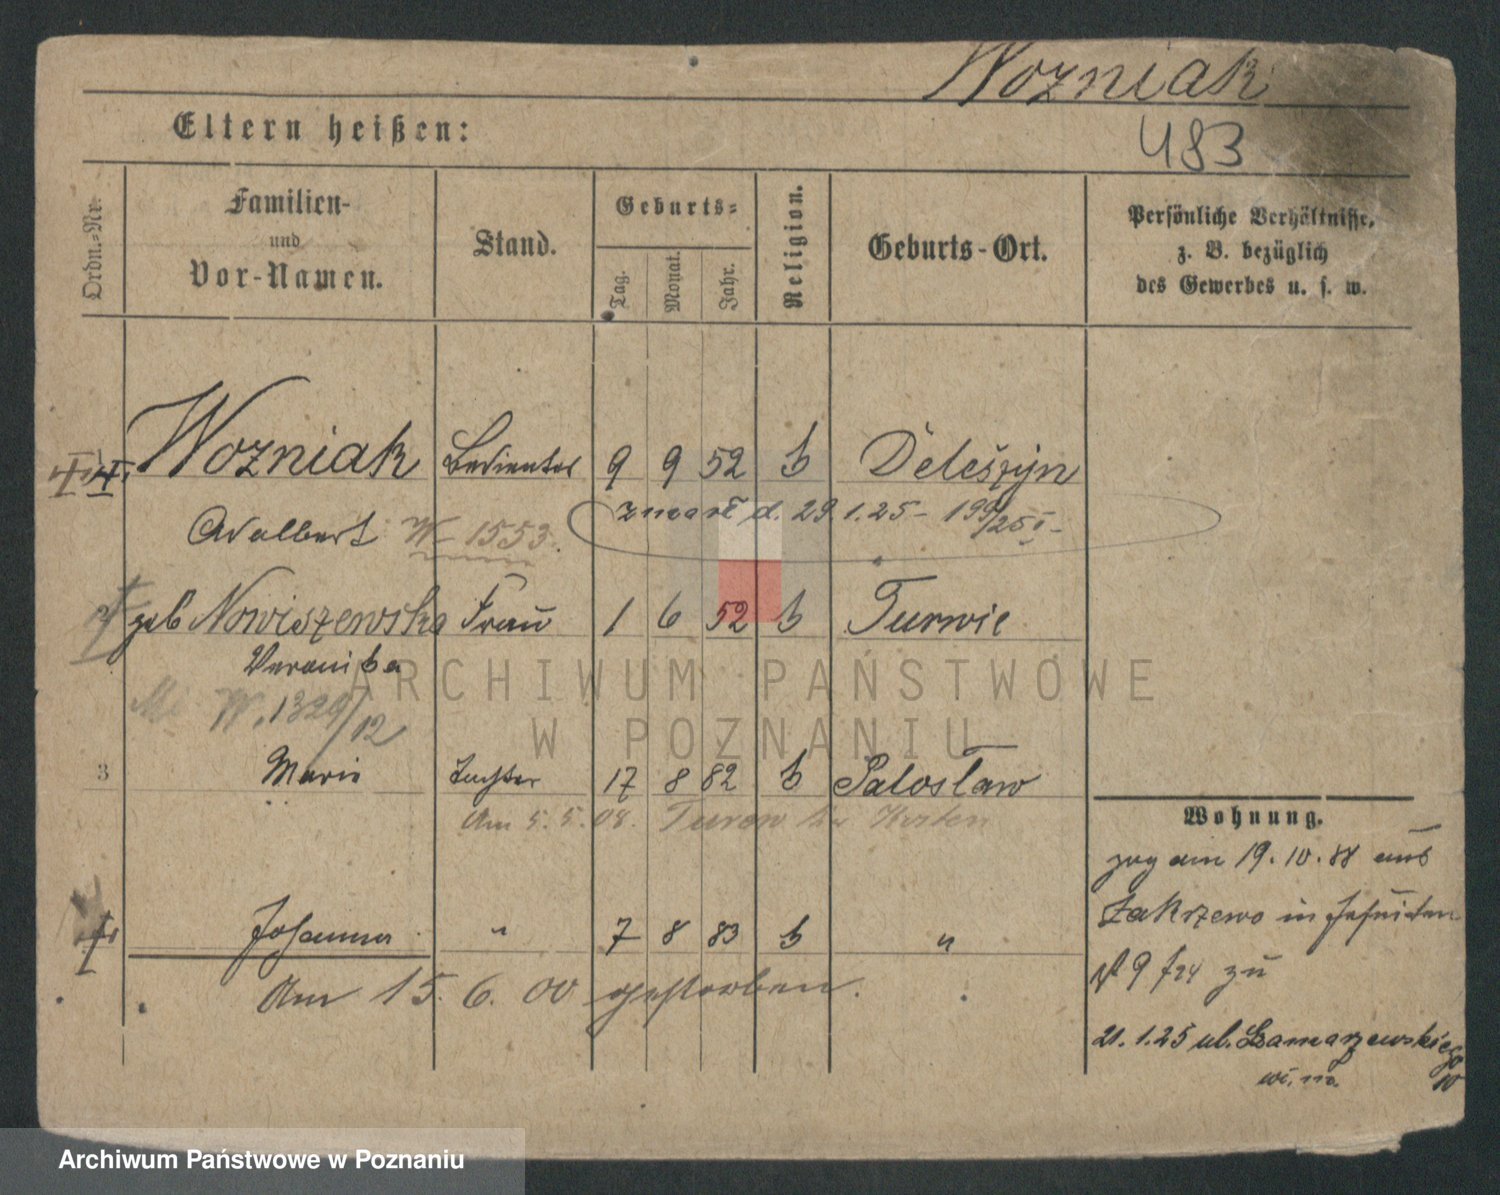 Wozniak
483
Eltern heißen:
Ordn.-Nr.
Familien-
und
Vor-Namen.
Stand.
Geburts-
Tag.
Monat.
Jahr.
Religion.
Geburts-Ort.
Persönliche Verhältnisse,
z. B. bezüglich
des Gewerbes u. s. w.
Wozniak Bedienter 9 9 52 k Deleszyn
Adalbert W 1553.
zmarł d. 29.1.25 - 199/25 I -
geb Nowiszewska Frau 1 6 52 k Turwie
Veronika
W. 1329/12
3 Marie Tochter 17 8 82 k Paloslaw
Am 5.5.08. Turew Kr Kosten
Johanna " 7 8 83 k "
Am 15. 6. 00 gestorben.
Wohnung.
zog am 19.10.88 aus
Zakrzewo in Jesuiten
9 zu
21.1.25 ul. Szamarzewskiego
10
ARCHIWUM PAŃSTWOWE
W POZNANIU
Archiwum Państwowe w Poznaniu